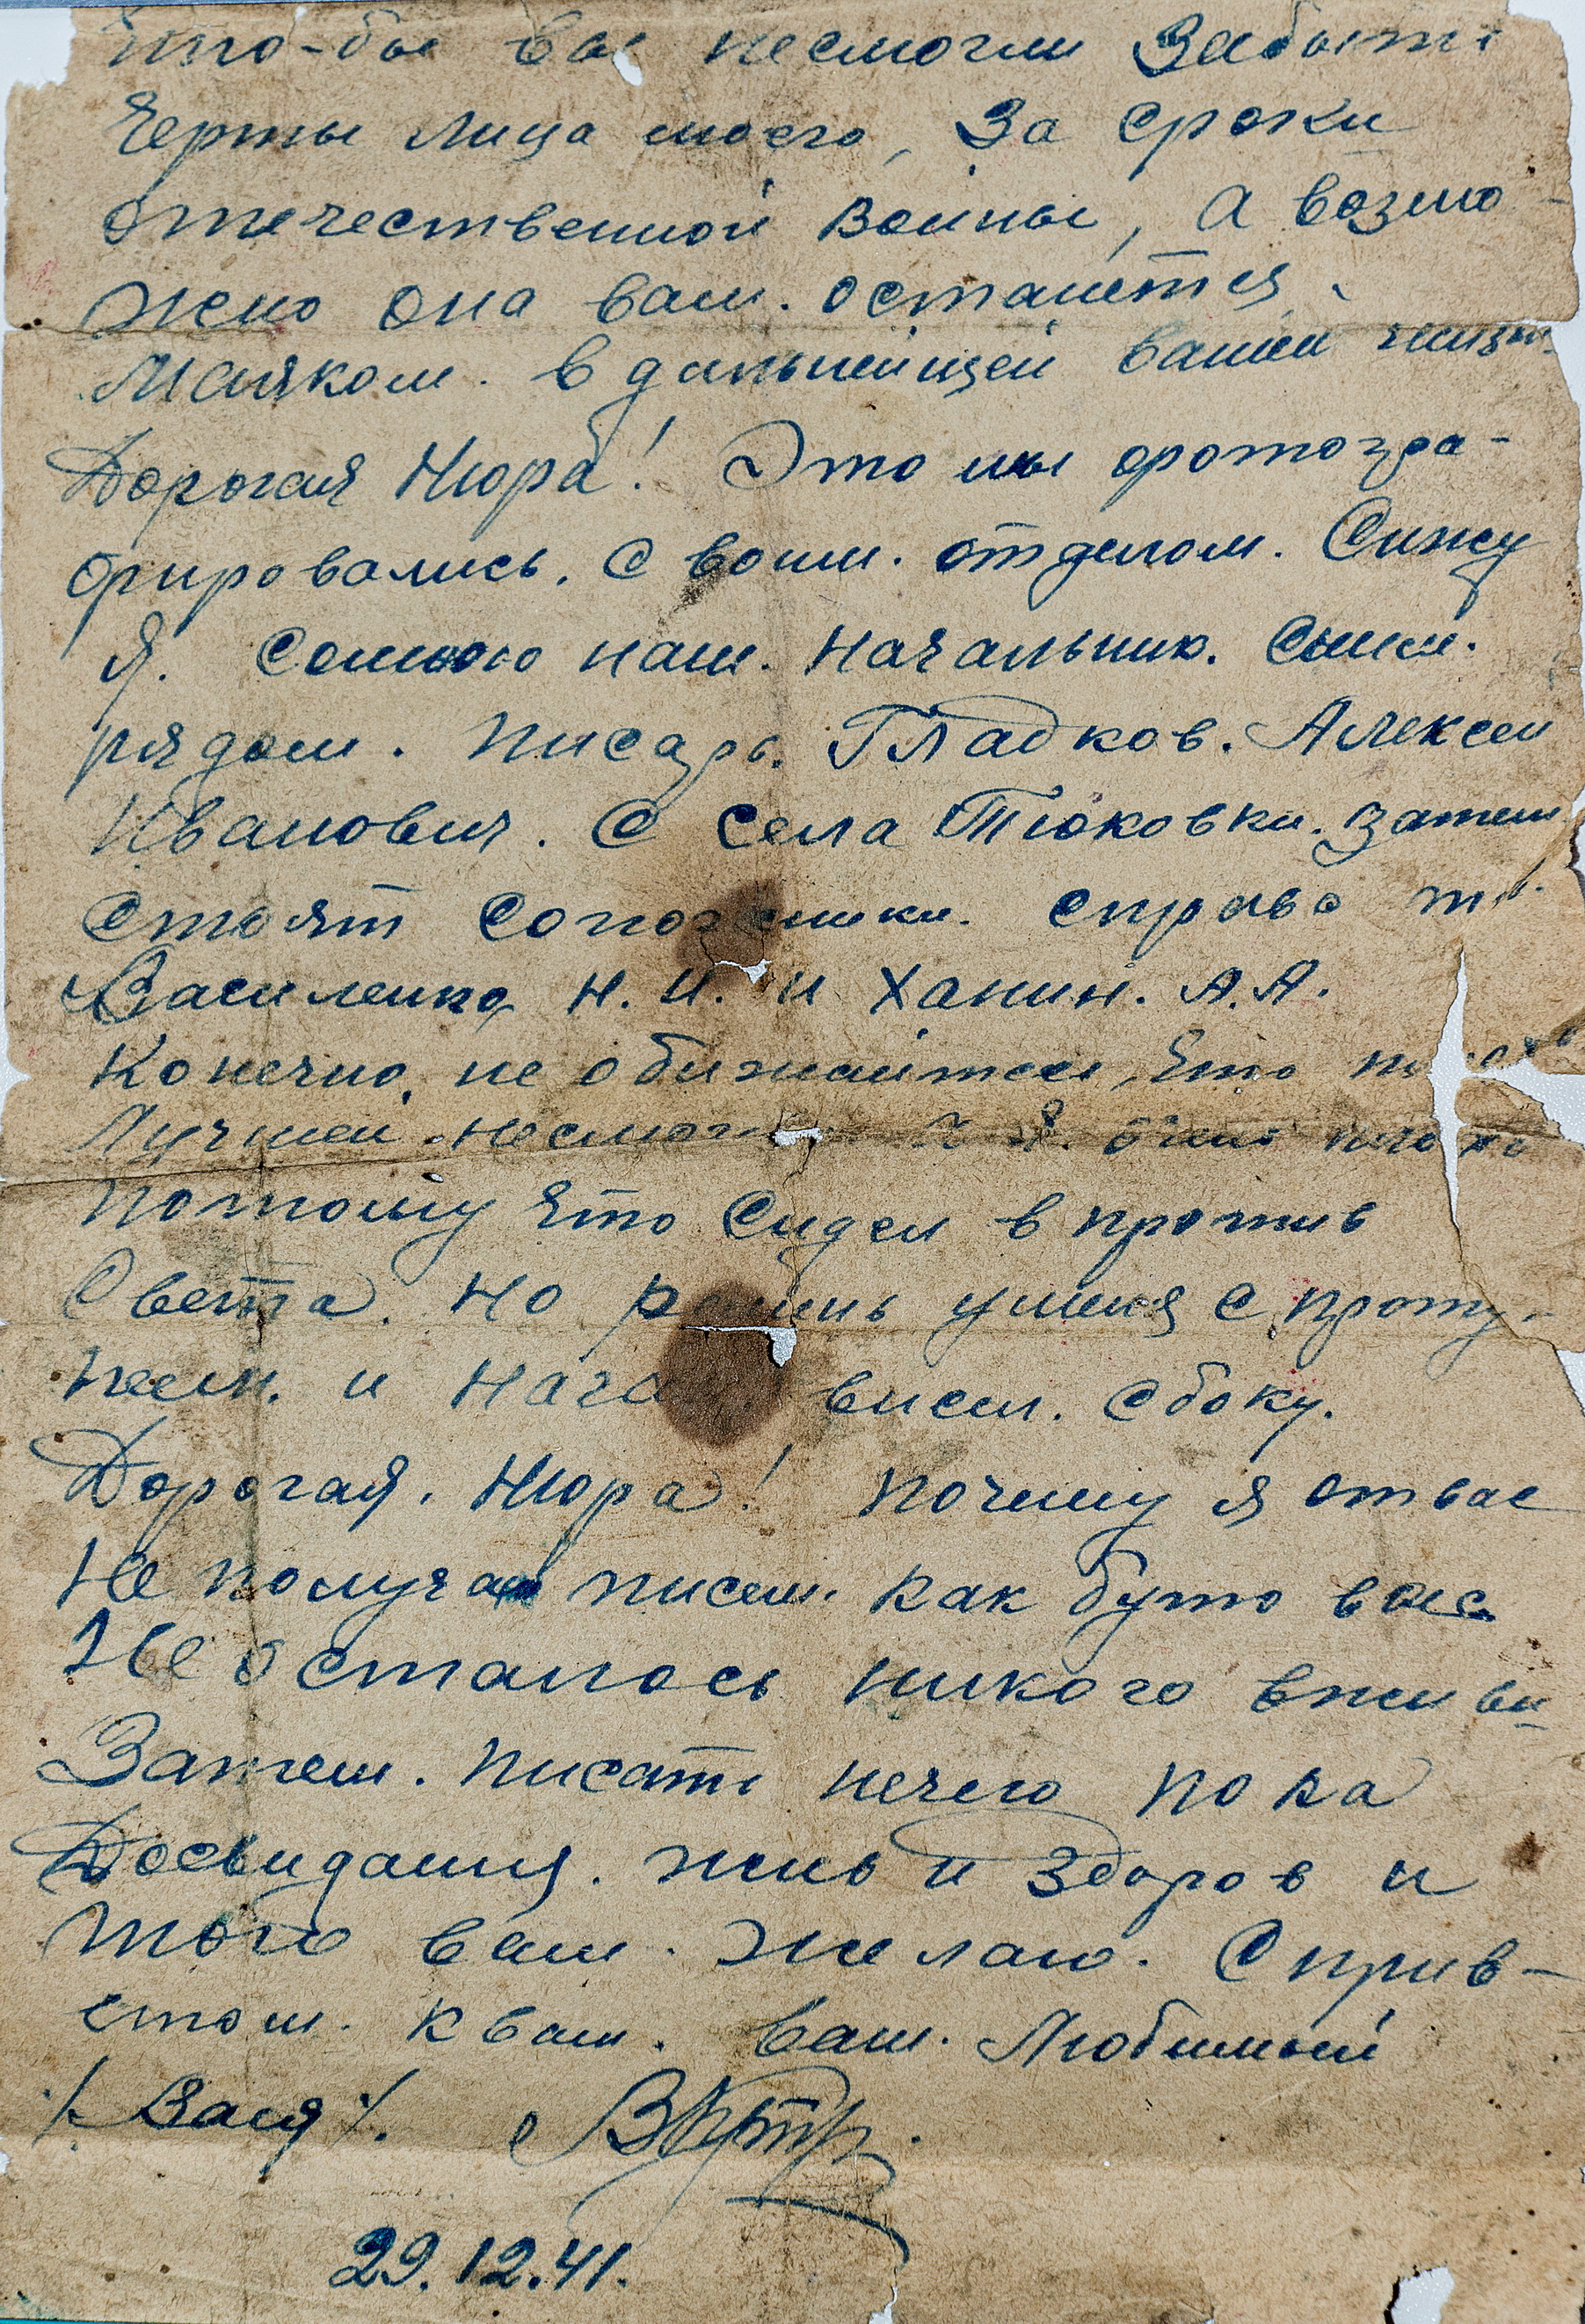 что-бы вы несмогли Забыть
Черты лица моего, За сроки
отечественной войны, а возмо-
жно она вам. останется.
Маяком. в дальнейщей вашей жизни.
Дорогая Нюра! Это мы фотогра-
фировались. С воим. отделом. Сижу
Я. Самною наш. Начальник. Сним.
рядом. писарь. Гладков. Алексей
Иванович. С Села Тюковки. затем
Стоят Сапожники. справа
Василенко Н. И. и Ханин. А. А.
Конечно, не обижайтесь, Что
Лучшей. Я. плохо
потому что Сидел в против
Света. но ремень ушел с пряж.
кем. и висел. сбоку.
Дорогая. Нюра! почему я от вас
Не получаю писем. как буто вас
Не осталось никого вживы
Затем. писать нечего пока
Досвидания. жив и Здоров и
того вам. желаю. С прив-
етом. к вам. ваш. Любимый
/. Вася ./.
29.12.41.